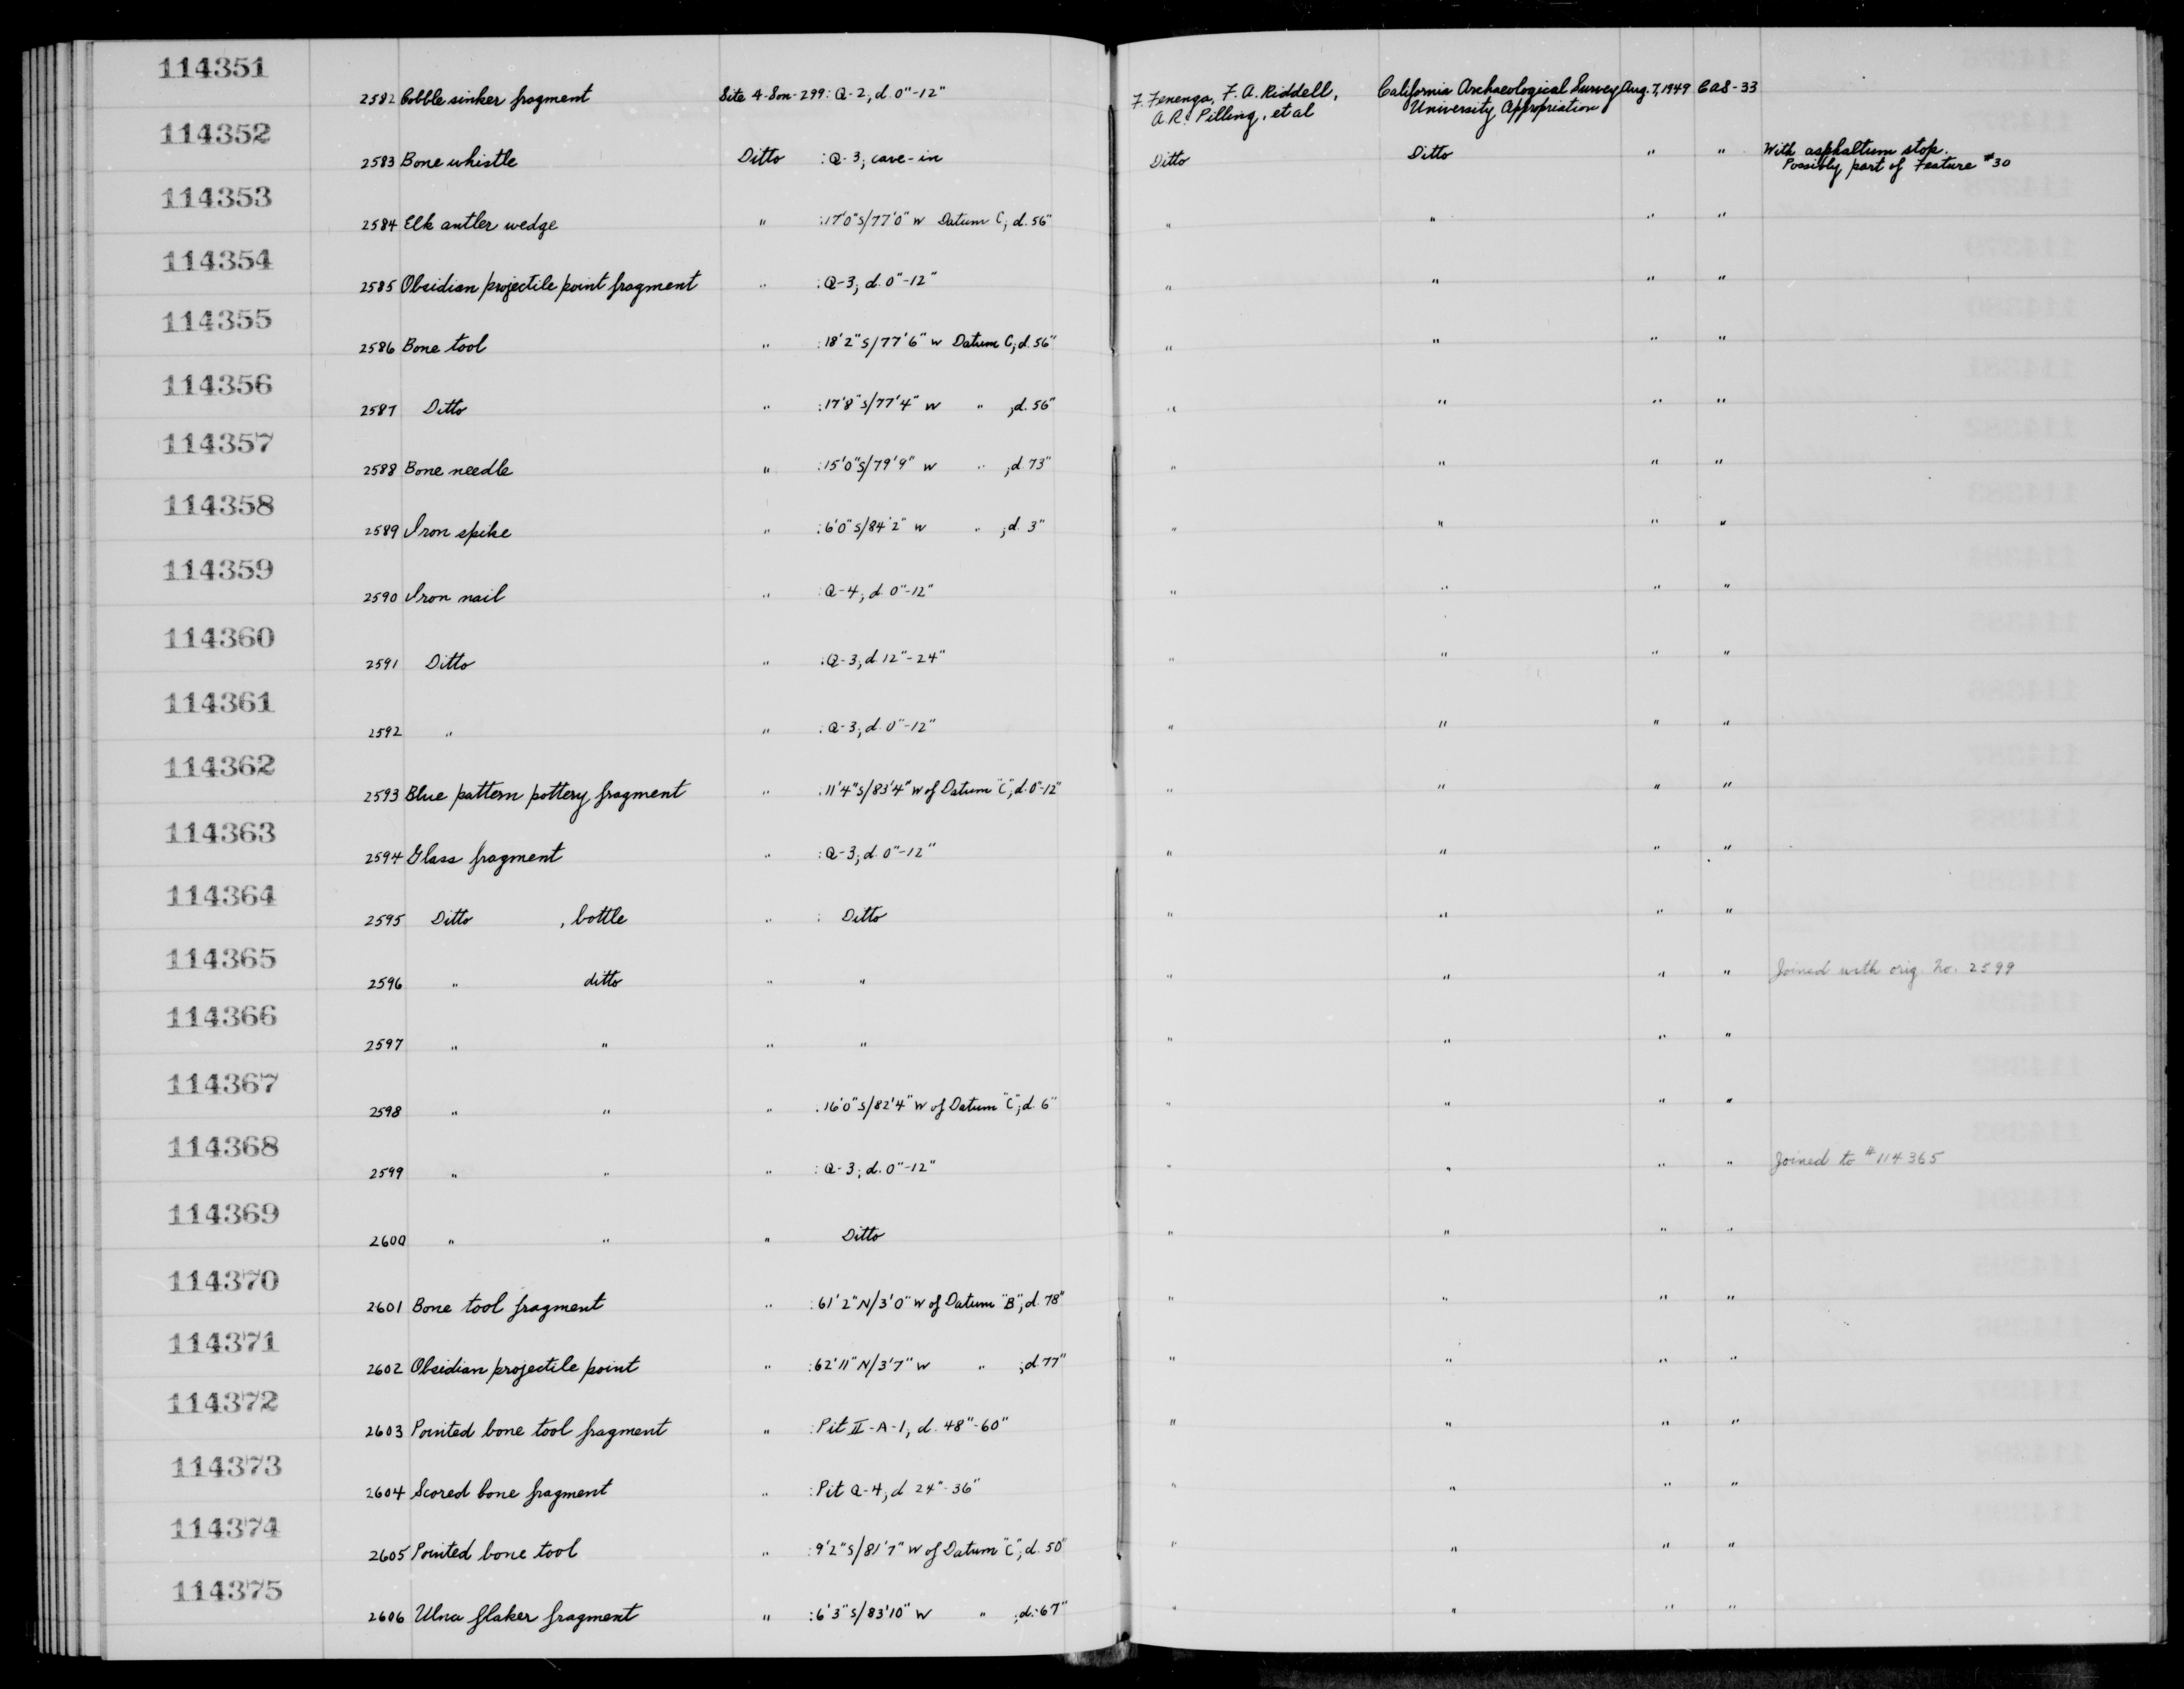 114351
2582 Cobble sinker fragment Site 4-Son-299: Q-2, d. 0"-12" F. Fenenga, F. A. Riddell, California Archaeological Survey Aug. 7, 1949 CAS-33
A. R. Pilling, et al University Appropriation
114352
2583 Bone whistle Ditto : Q-3; cave-in Ditto Ditto " " With asphaltum stop.
Possibly part of Feature #30
114353
2584 Elk antler wedge " : 17'0"S/77'0" W Datum C, d. 56" " " " "
114354
2585 Obsidian projectile point fragment " : Q-3, d. 0"-12" " " " "
114355
2586 Bone tool " : 18'2"S/77'6" W Datum C; d. 56" " " " "
114356
2587 Ditto " : 17'8"S/77'4" W " ; d. 56" " " " "
114357
2588 Bone needle " : 15'0"S/79'9" W " ; d. 73" " " " "
114358
2589 Iron spike " : 6'0"S/84'2" W " ; d. 3" " " " "
114359
2590 Iron nail " : Q-4; d. 0"-12" " " " "
114360
2591 Ditto " : Q-3; d 12"-24" " " " "
114361
2592 " " : Q-3; d. 0"-12" " " " "
114362
2593 Blue pattern pottery fragment " : 11'4"S/83'4" W of Datum "C"; d. 0"-12" " " " "
114363
2594 Glass fragment " : Q-3; d. 0"-12" " " " "
114364
2595 Ditto , bottle " : Ditto " " " "
114365
2596 " ditto " " " " " " Joined with orig. No. 2599
114366
2597 " " " " " " " "
114367
2598 " " " : 16'0"S/82'4" W of Datum "C"; d. 6" " " " "
114368
2599 " " " : Q-3; d. 0"-12" " " " " Joined to #114365
114369
2600 " " " Ditto " " " "
114370
2601 Bone tool fragment " : 61'2"N/3'0" W of Datum "B"; d. 78" " " " "
114371
2602 Obsidian projectile point " : 62'11"N/3'7" W " ; d 77" " " " "
114372
2603 Pointed bone tool fragment " : Pit II-A-1, d. 48"-60" " " " "
114373
2604 Scored bone fragment " : Pit Q-4; d 24"-36" " " " "
114374
2605 Pointed bone tool " : 9'2"S/81'7" W of Datum "C"; d. 50" " " " "
114375
2606 Ulna flaker fragment " : 6'3"S/83'10" W " ; d. 67" " " " "